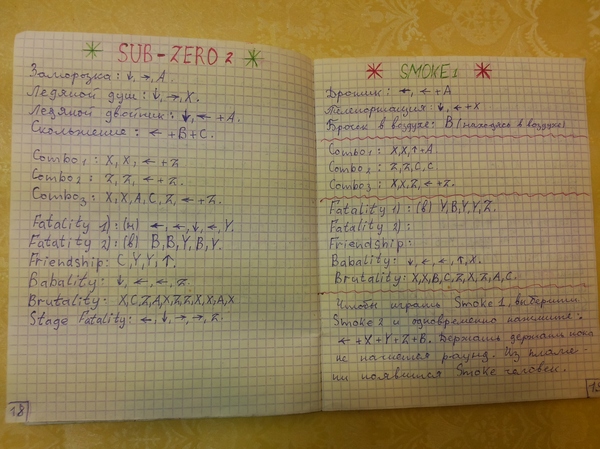 SUB-ZERO 2
Заморозка: ↓, →, A.
Ледяной душ: ↓, →, X.
Ледяной двойник: ↓, ← + A.
Скольжение: ← + B + C.
Combo 1: X, X, ← + Z.
Combo 2: Z, Z, ← + Z.
Combo 3: X, X, A, C, Z, ← + Z.
Fatality 1): (н) ←, ←, ↓, ←, Y.
Fatality 2): (в) B, B, Y, B, Y.
Friendship: C, Y, Y, ↑.
Babality: ↓, ←, ←, Z.
Brutality: X, C, Z, A, X, Z, Z, X, X, A, X
Stage Fatality: ←, ↓, →, →, Z.
18
SMOKE 1
Дротик: ←, ← + A
Телепортация: ↓, ← + X
Бросок в воздухе: B (находясь в воздухе)
Combo 1: X, X, ↑ + A
Combo 2: Z, Z, C, C
Combo 3: X, X, Z, ← + Z.
Fatality 1): (в) Y, B, Y, Y, Z.
Fatality 2):
Friendship:
Babality: ↓, ←, ←, ↑, X.
Brutality: X, X, B, C, Z, X, Z, A, C.
Чтобы играть Smoke 1, выбериш
Smoke 2 и одновременно нажмите:
← + X + Y + Z + B. Держать держать пока
не начнется раунд. Из пламе-
ни появится Smoke человек.